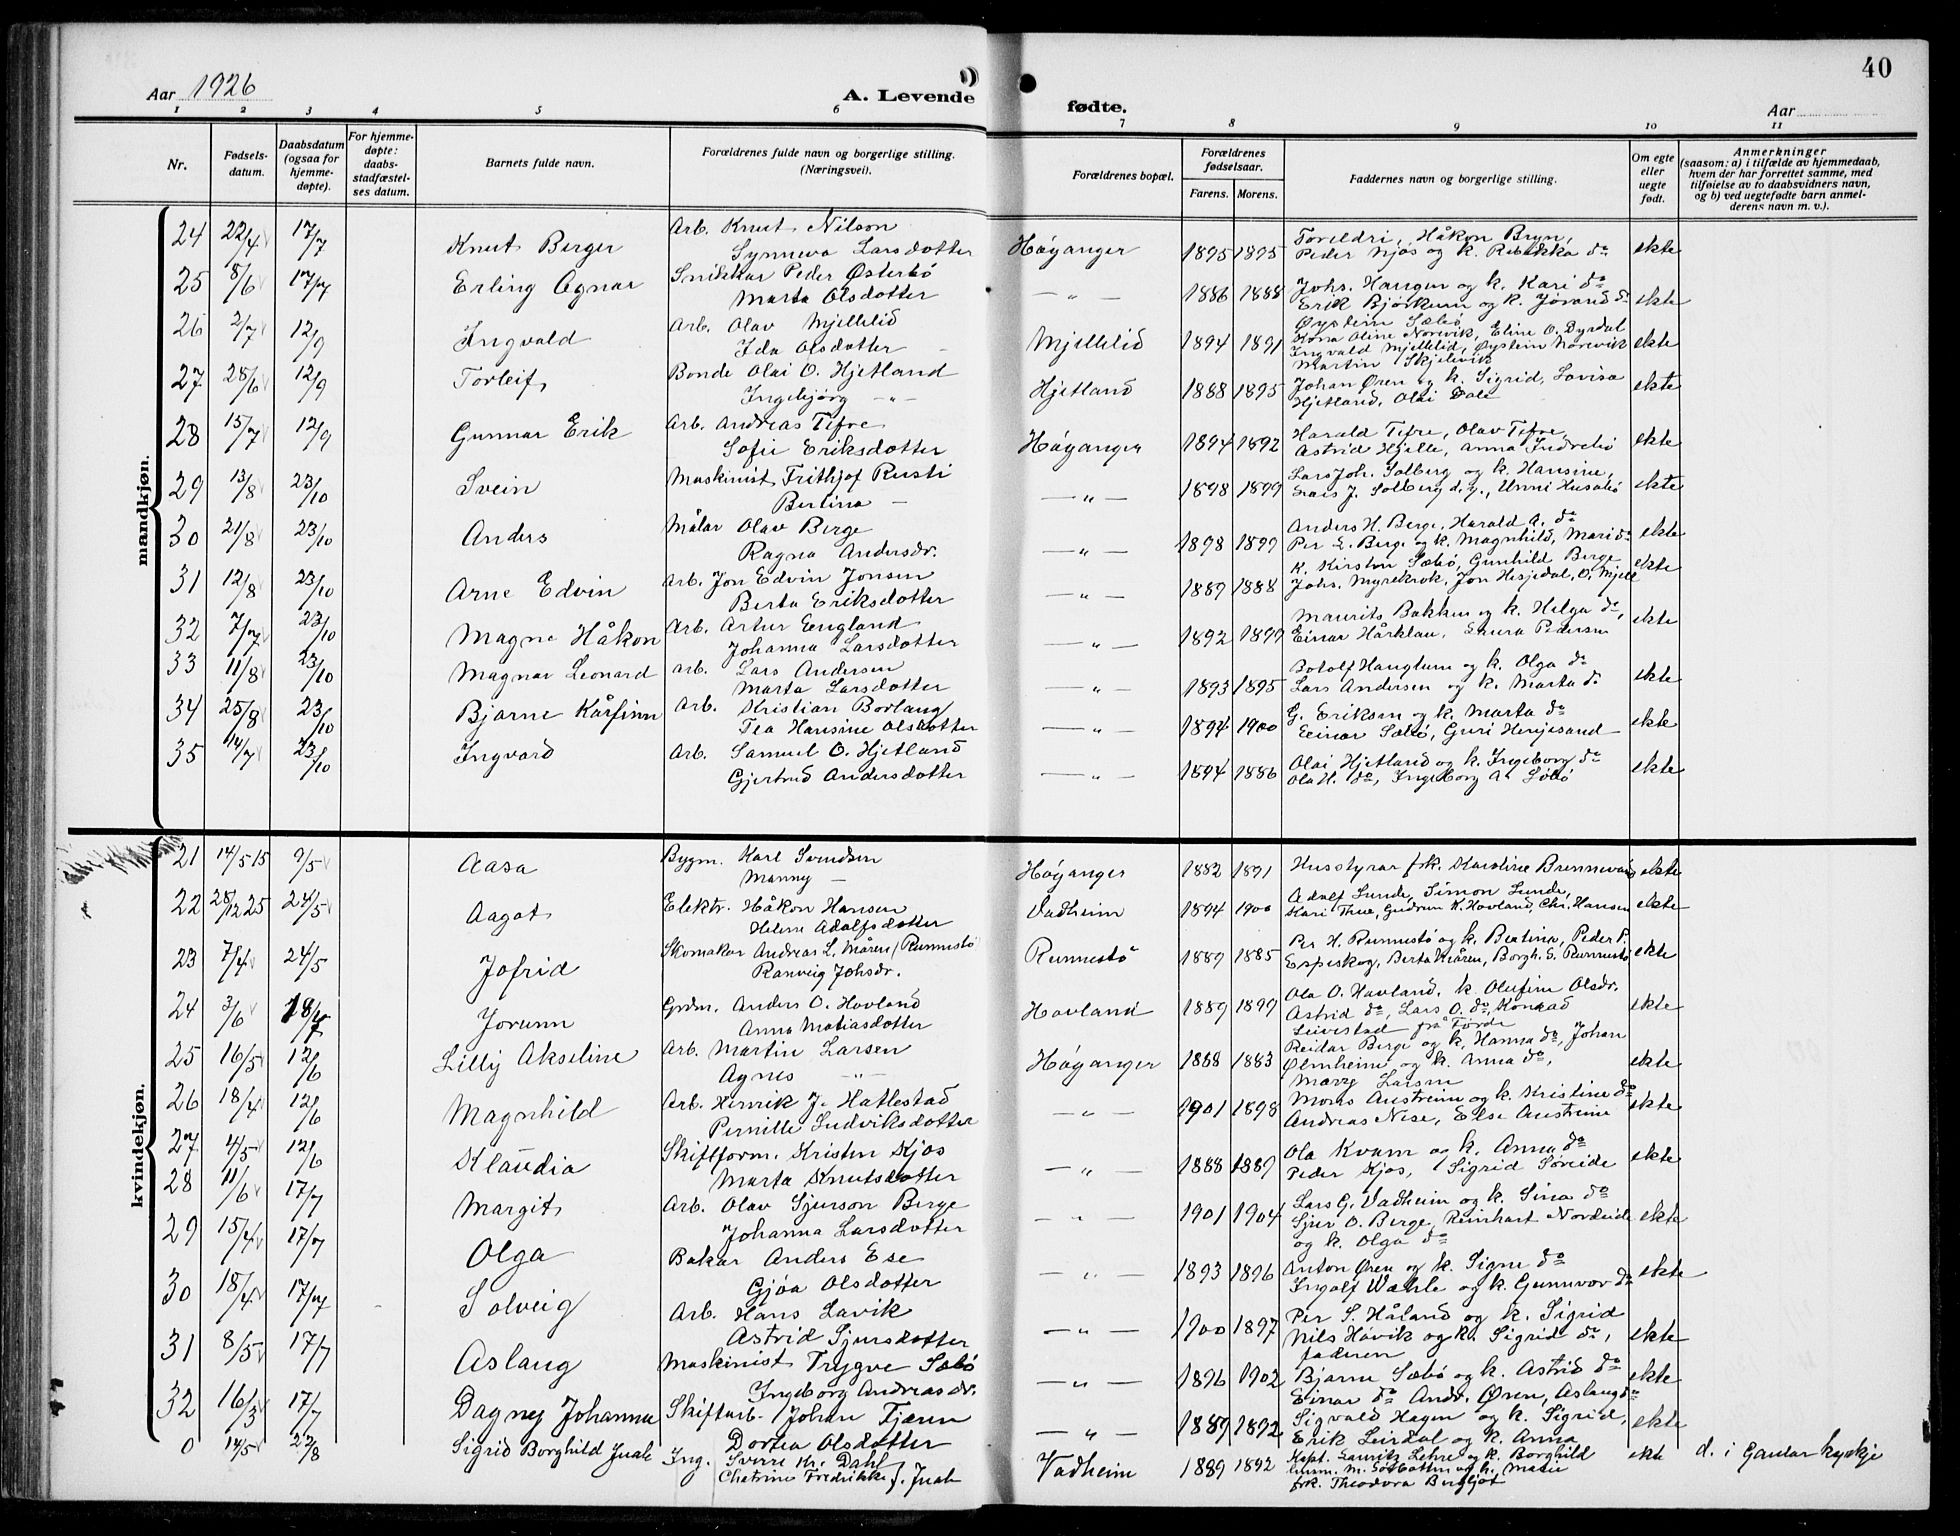 40
Aar 1926
A. Levende fødte.
Aar
1 2 3 4 5 6 7 8 9 10 11
Nr.
Fødselsdatum.
Daabsdatum (ogsaa for hjemmedøpte).
For hjemmedøpte: daabsstadfæstelses datum.
Barnets fulde navn.
Forældrenes fulde navn og borgerlige stilling. (Næringsvei).
Forældrenes bopæl.
Forældrenes fødselsaar.
Farens. Morens.
Faddernes navn og borgerlige stilling.
Om egte eller uegte født.
Anmerkninger (saasom: a) i tilfælde av hjemmedaab, hvem der har forrettet samme, med tilføielse av to daabsvidners navn, og b) ved uegtefødte barn anmelderens navn m. v.).
mandkjøn.
24 22/4 17/7 Knut Berger Arb. Knut Nilson Høyanger 1895 1895 Foreldri, Håkon Bryn, ekte
Synneva Larsdotter Peder Njøs og k. Rebekka do
25 8/6 17/7 Erling Agnar Snikkar Peder Østerbø — " — 1886 1888 Johs. Haugen og k. Kari do ekte
Marta Olsdotter Erik Bjørkum og k. Jorand do
Øystein Sæbø
26 2/7 12/9 Ingvald Arb. Olav Mjellelid Mjellelid 1894 1891 Kona Oline Norevik, Eline O. Dyrdal ekte
Ida Olsdotter Ingvald Mjellelid, Øystein Norevik
Martin Skjelevik
27 28/6 12/9 Torleif Bonde Olai O. Hjetland Hjetland 1888 1895 Johan Øren og k. Sigrid, Lovisa ekte
Ingebjørg — " — Hjetland, Olai Dale
28 15/7 12/9 Gunnar Erik Arb. Andreas Tefre Høyanger 1894 1892 Harald Tefre, Olav Tefre ekte
Sofie Eriksdotter Astrid Hjelle, Anna Indrebø
29 13/8 23/10 Svein Maskinist Frithjof Rusti — " — 1898 1899 Lars Joh. Solberg og k. Hansine, ekte
Bertina — Lars J. Solberg d.y., Unni Husabø
30 21/8 23/10 Anders Målar Olav Berge — " — 1898 1899 Anders H. Berge, Harald A. do ekte
Ragna Andersdr. Per E. Berge og k. Magnhild, Mari do
31 12/8 23/10 Arne Edvin Arb. Jon Edvin Jonsen — " — 1889 1888 K. Kirsten Sæbø, Gunhild Berge ekte
Berta Eriksdotter Johs. Myrekrok, Jon Hesjedal, O. Mjell
32 7/7 23/10 Magne Håkon Arb. Artur England — " — 1892 1899 Maurits Bakken og k. Helga do, ekte
Johanna Larsdotter Einar Hårklau, Laura Pedersen
33 11/8 23/10 Magnar Leonard Arb. Lars Andersen — " — 1893 1895 Botolf Haugtun og k. Olga do ekte
Marta Larsdotter Lars Andersen og k. Marta do
34 25/8 23/10 Bjarne Kårfinn Arb. Kristian Borlaug — " — 1894 1900 G. Eriksen og k. Marta do ekte
Tea Hansine Olsdotter Einar Sæbø, Guri Henjesand
35 14/7 23/10 Ingvard Arb. Samuel O. Hjetland — " — 1894 1886 Olai Hjetland og k. Ingeborg do ekte
Gjertrud Andersdotter Ola H. do, Ingeborg A. Løbø
kvindekjøn.
21 14/5 15 9/5 Aasa Bygm. Karl Svendsen Høyanger 1882 1891 Husstyrar frk. Karoline Brennevang ekte
Manny —
22 28/12 25 24/5 Aagot Elektr. Håkon Hansen Vadheim 1894 1900 Adolf Sunde, Simon Sunde, ekte
Helene Adolfsdotter Kari Thue, Gudrun K. Hovland, Chr. Hansen
23 7/4 24/5 Jofrid Skomakar Andreas L. Måren (Runnestø) Runnestø 1889 1885 Per H. Runnestø og k. Bertina, Peder P. ekte
Ranveig Johsdr. Espeskog, Berta Måren, Borgh. S. Runnestø
24 3/6 18/7 Jorunn Grdm. Anders O. Hovland Hovland 1889 1899 Ola O. Hovland, k. Olufine Olsdr. ekte
Anna Matiasdotter Astrid do, Lars O. do, Konrad
Leivestad på Førde
25 16/5 12/6 Lilly Akseline Arb. Martin Larsen Høyanger 1888 1883 Reidar Berge og k. Hanna do, Johan ekte
Agnes — " — Ølmheim og k. Anna do,
Marry Larsen
26 18/4 12/6 Magnhild Arb. Henrik J. Hatlestad — " — 1901 1898 Mons Austreim og k. Kristine do ekte
Pernille Ludviksdotter Andreas Nese, Else Austreim
27 4/5 12/6 Klaudia Skiftform. Kristen Kjos — " — 1888 1889 Ola Kvam og k. Anna do ekte
Marta Knutsdotter Peder Kjos, Sigrid Søreide
28 11/6 17/7 Margit Arb. Olav Sjurson Berge — " — 1901 1904 Lars G. Vadheim og k. Sina do ekte
Johanna Larsdotter Sjur O. Berge, Reinhart Nordeide
og k. Olga do
29 15/4 17/7 Olga Bakar Anders Ese — " — 1893 1896 Anton Øren og k. Signe do ekte
Gjøa Olsdotter Ingolf Wahle og k. Gunnvor do
30 18/4 17/7 Solveig Arb. Hans Lavik — " — 1900 1897 Per S. Håland og k. Sigrid ekte
Astrid Sjursdotter Nils Høvik og k. Sigrid do,
faderen
31 8/5 17/7 Aslaug Maskinist Trygve Sæbø — " — 1896 1902 Bjarne Sæbø og k. Astrid do ekte
Ingeborg Andreasdr. Einar do Andr. Øren, Aslaug do
32 16/3 17/7 Dagney Johanna Skiftarb. Johan Tjærn — " — 1889 1892 Sigvald Hagen og k. Sigrid, ekte
Dortea Olsdotter Erik Leirdal og k. Anna
0 14/5 22/8 Sigrid Borghild Juah Ing. Sverre Kr. Dahl Vadheim 1889 1892 Kapt. Lauritz Lehre og k. Borghild ekte d. i Gaular kyrkje
Chatrine Fredrikke f. Juah k. Marie
frk. Theodora Bergljot